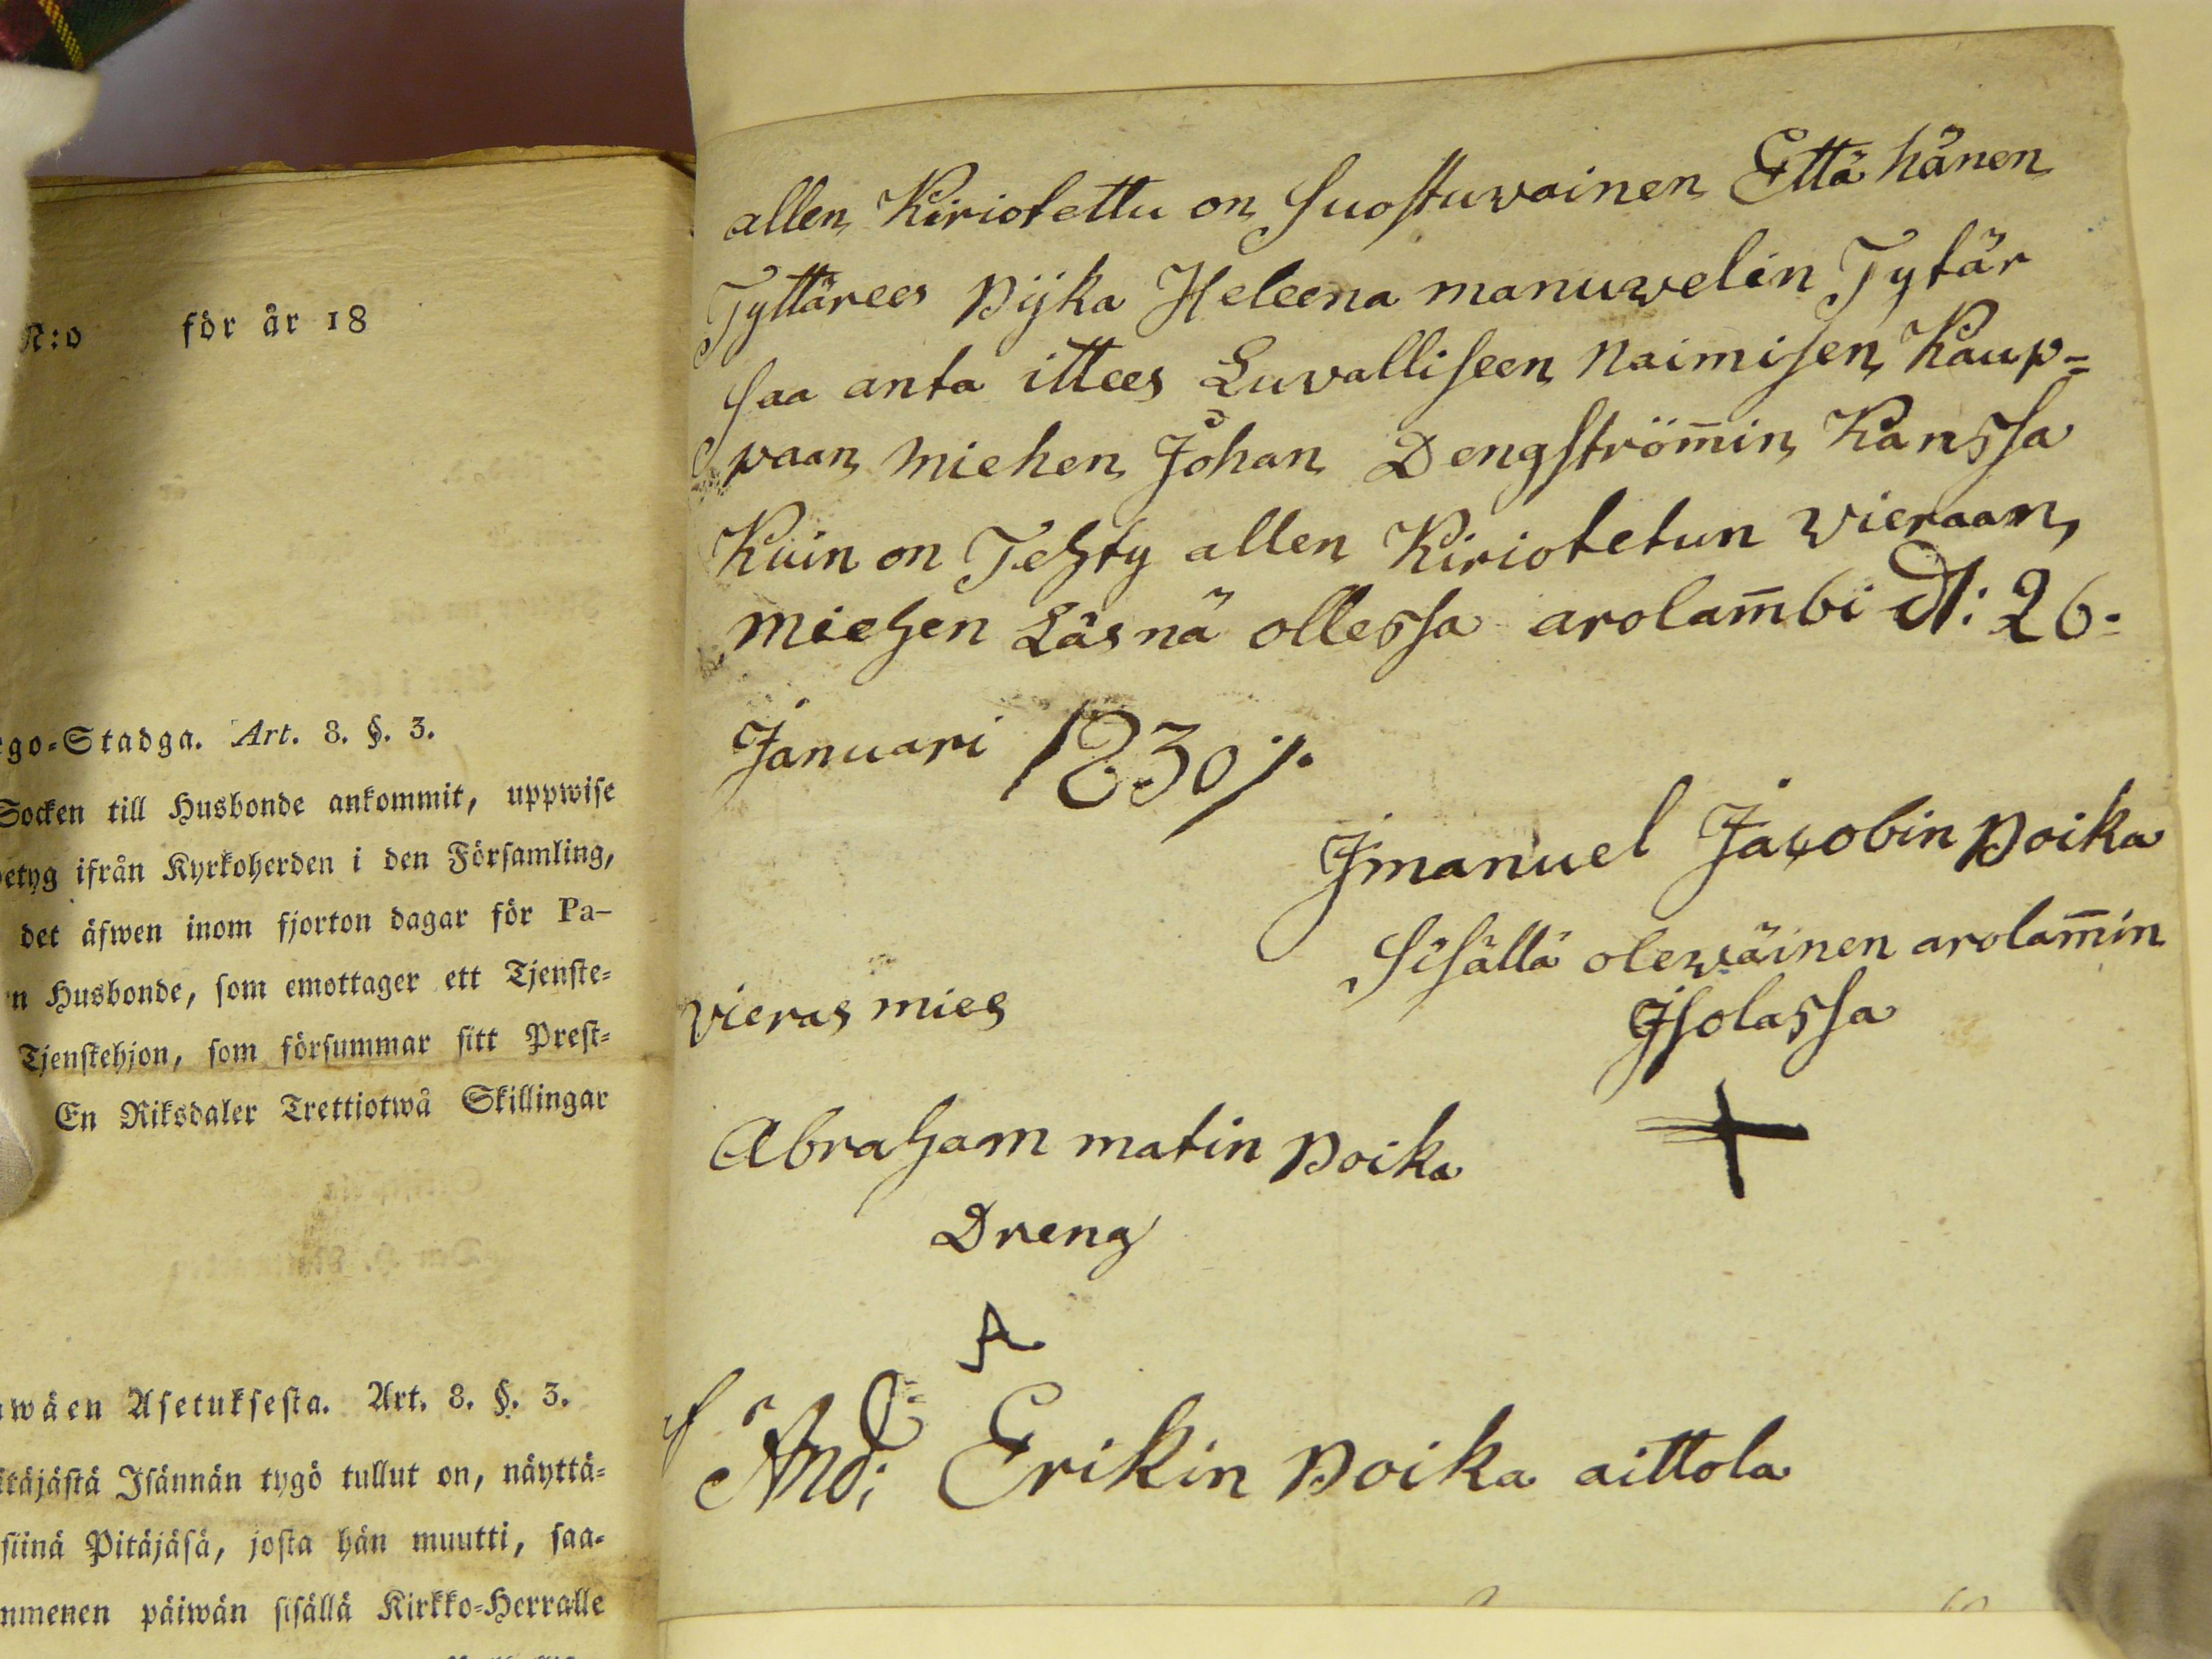 N:o för år 18
ego-Stadga. Art. 8. §. 3.
Socken till Husbonde ankommit, uppwise
betyg ifrån Kyrkoherden i den Församling,
det äfwen inom fjorton dagar för Pa-
n Husbonde, som emottager ett Tjenste-
Tjenstehjon, som försummar sitt Prest-
En Riksdaler Trettiotwå Skillingar
wäen Asetuksesta. Art. 8. §. 3.
itäjästä Isännän tygö tullut on, näyttä-
siinä Pitäjäsä, josta hän muutti, saa-
mmenen päiwän sisällä Kirkko-Herralle
allen Kiriotettu on Suostuwainen Että hänen
Tyttärees pijka Heleena manuwelin Tytär
saa anta ittees Luvalliseen Naimisen Kaup=
paan miehen Johan Dengström̄in Kanssa
Kuin on Tehty allen Kiriotetun Vieraan
miehen Läsnä ollessa arolam̄bi d: 26:
Januari 1830 ./.
Jmanuel Jacobin poika
Sisällä olewäinen arolam̄in
Jsolassa
Vieras mies
Abraham matin poika
Dreng
A
And: Erikin poika aittola